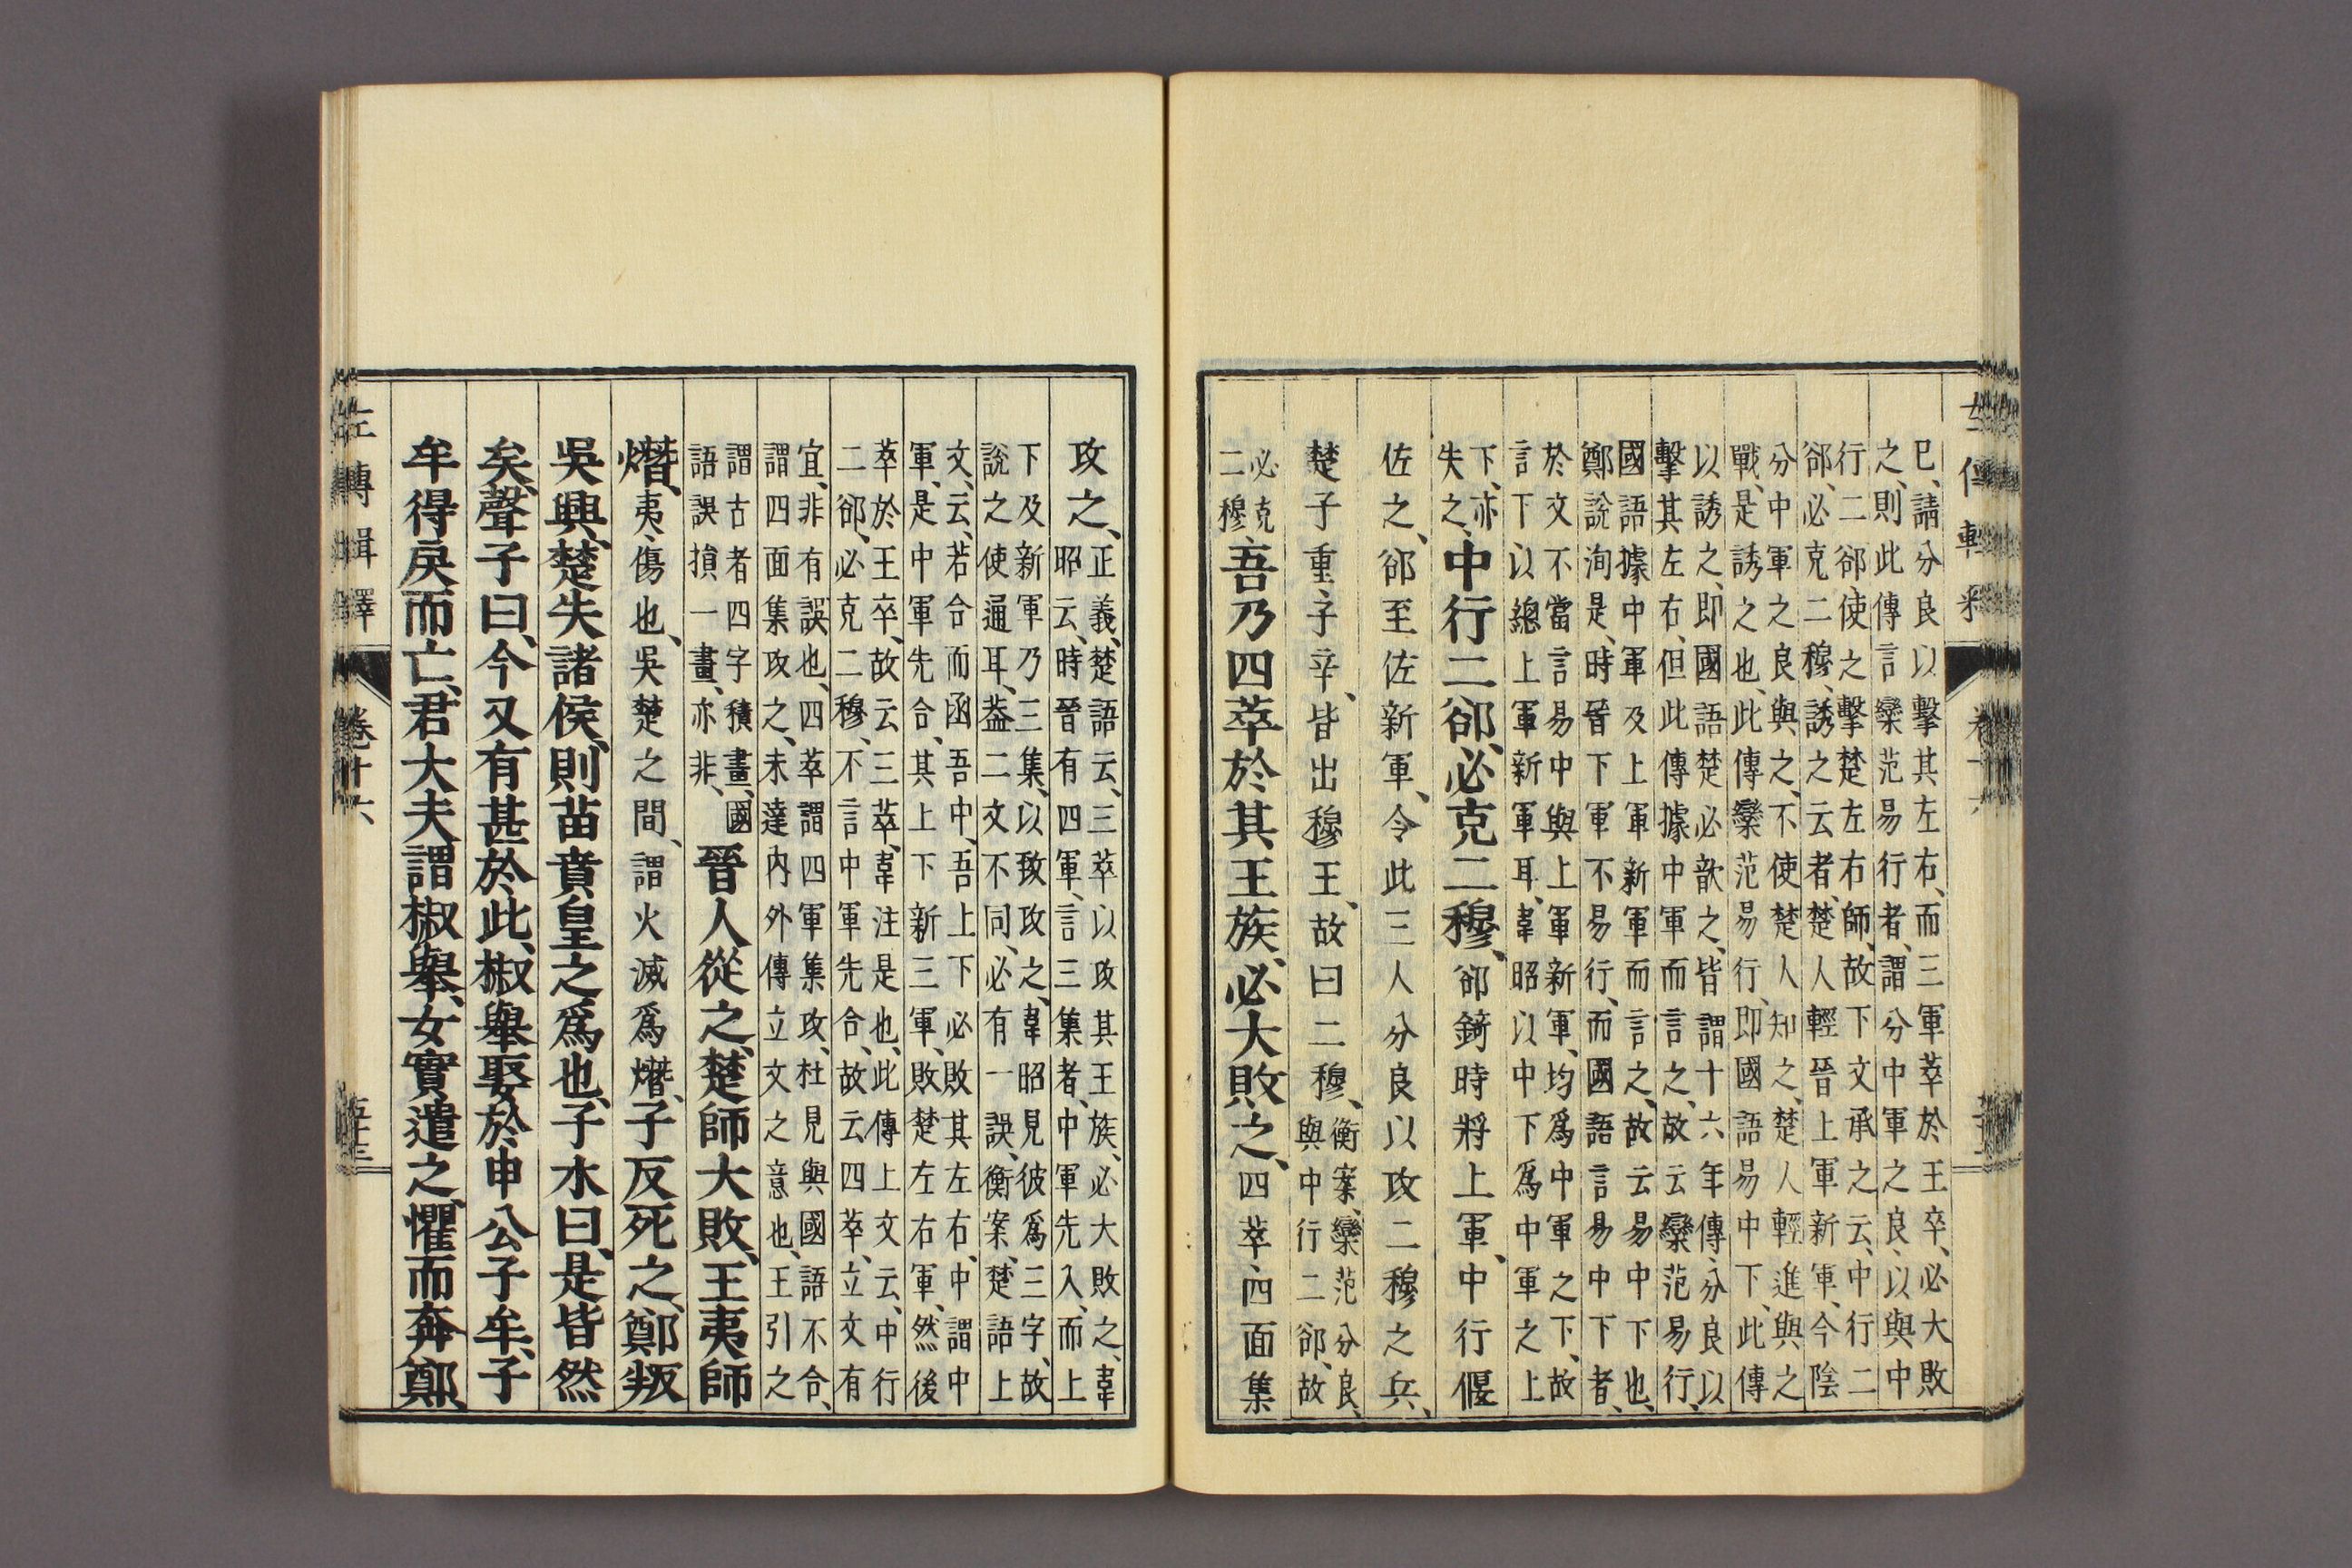 已、請分良以擊其左右、而三軍萃於王卒、必大敗
之、則此傳言欒范易行者、謂分中軍之良、以與中
行二郤、使之擊楚左右師、故下文承之云、中行二
郤、必克二穆、誘之云者、楚人輕晉上軍新軍、今陰
分中軍之良與之、不使楚人知之、楚人輕進與之
戰、是誘之也、此傳欒范易行、即國語易中下、此傳
以誘之、即國語楚必歆之、皆謂十六年傳、分良以
擊其左右、但此傳據中軍而言之、故云欒范易行、
國語據中軍及上軍新軍而言之、故云易中下也、
鄭說洵是、時晉下軍不易行、而國語言易中下者、
於文不當言易中與上軍新軍、均爲中軍之下、故
言下以總上軍新軍耳、韋昭以中下爲中軍之上
下、亦
失之、中行二郤、必克二穆、郤錡時將上軍、中行偃
佐之、郤至佐新軍、令此三人分良以攻二穆之兵、
楚子重、子辛、皆出穆王、故曰二穆、衡案、欒范分良、
與中行二郤、故
必克
二穆、吾乃四萃於其王族、必大敗之、四萃、四面集
攻之、正義、楚語云、三萃以攻其王族、必大敗之、韋
昭云、時晉有四軍、言三集者、中軍先入、而上
下及新軍乃三集、以致攻之、韋昭見彼爲三字、故
說之使通耳、蓋二文不同、必有一誤、衡案、楚語上
文、云、若合而函吾中、吾上下必敗其左右、中謂中
軍、是中軍先合、其上下新三軍、敗楚左右軍、然後
萃於王卒、故云三萃、韋注是也、此傳上文云、中行
二郤、必克二穆、不言中軍先合、故云四萃、立文有
宜、非有誤也、四萃謂四軍集攻、杜見與國語不合、
謂四面集攻之、未達內外傳立文之意也、王引之
謂古者四字積畫、國
語誤損一畫、亦非、晉人從之、楚師大敗、王夷師
熸、夷、傷也、吳楚之間、謂火滅爲熸、子反死之、鄭叛
吳興、楚失諸侯、則苗賁皇之爲也、子木曰、是皆然
矣、聲子曰、今又有甚於此、椒舉娶於申公子牟、子
牟得戾而亡、君大夫謂椒舉、女實遣之、懼而奔鄭
左傳輯釋
卷十六